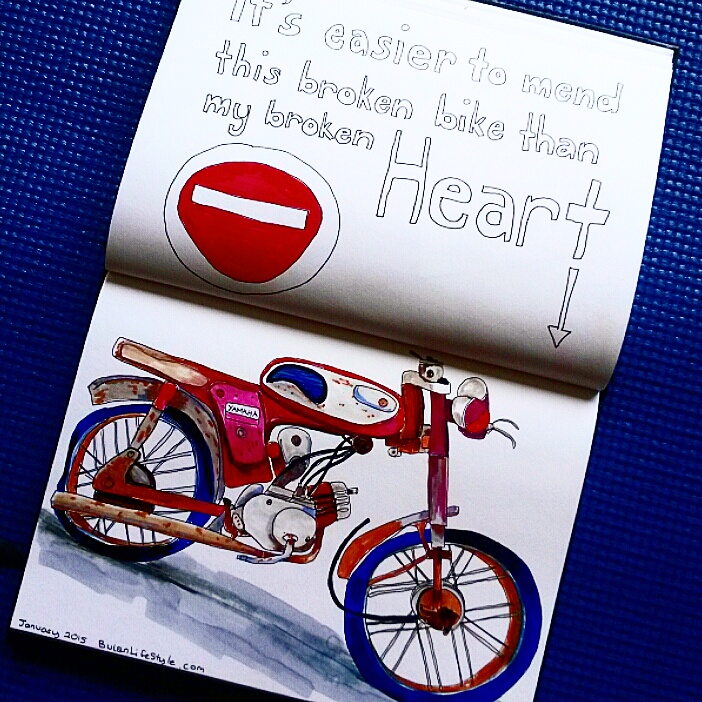 It's easier to mend
this broken bike than
my broken Heart
YAMAHA
January 2015 BulanLifeStyle.com